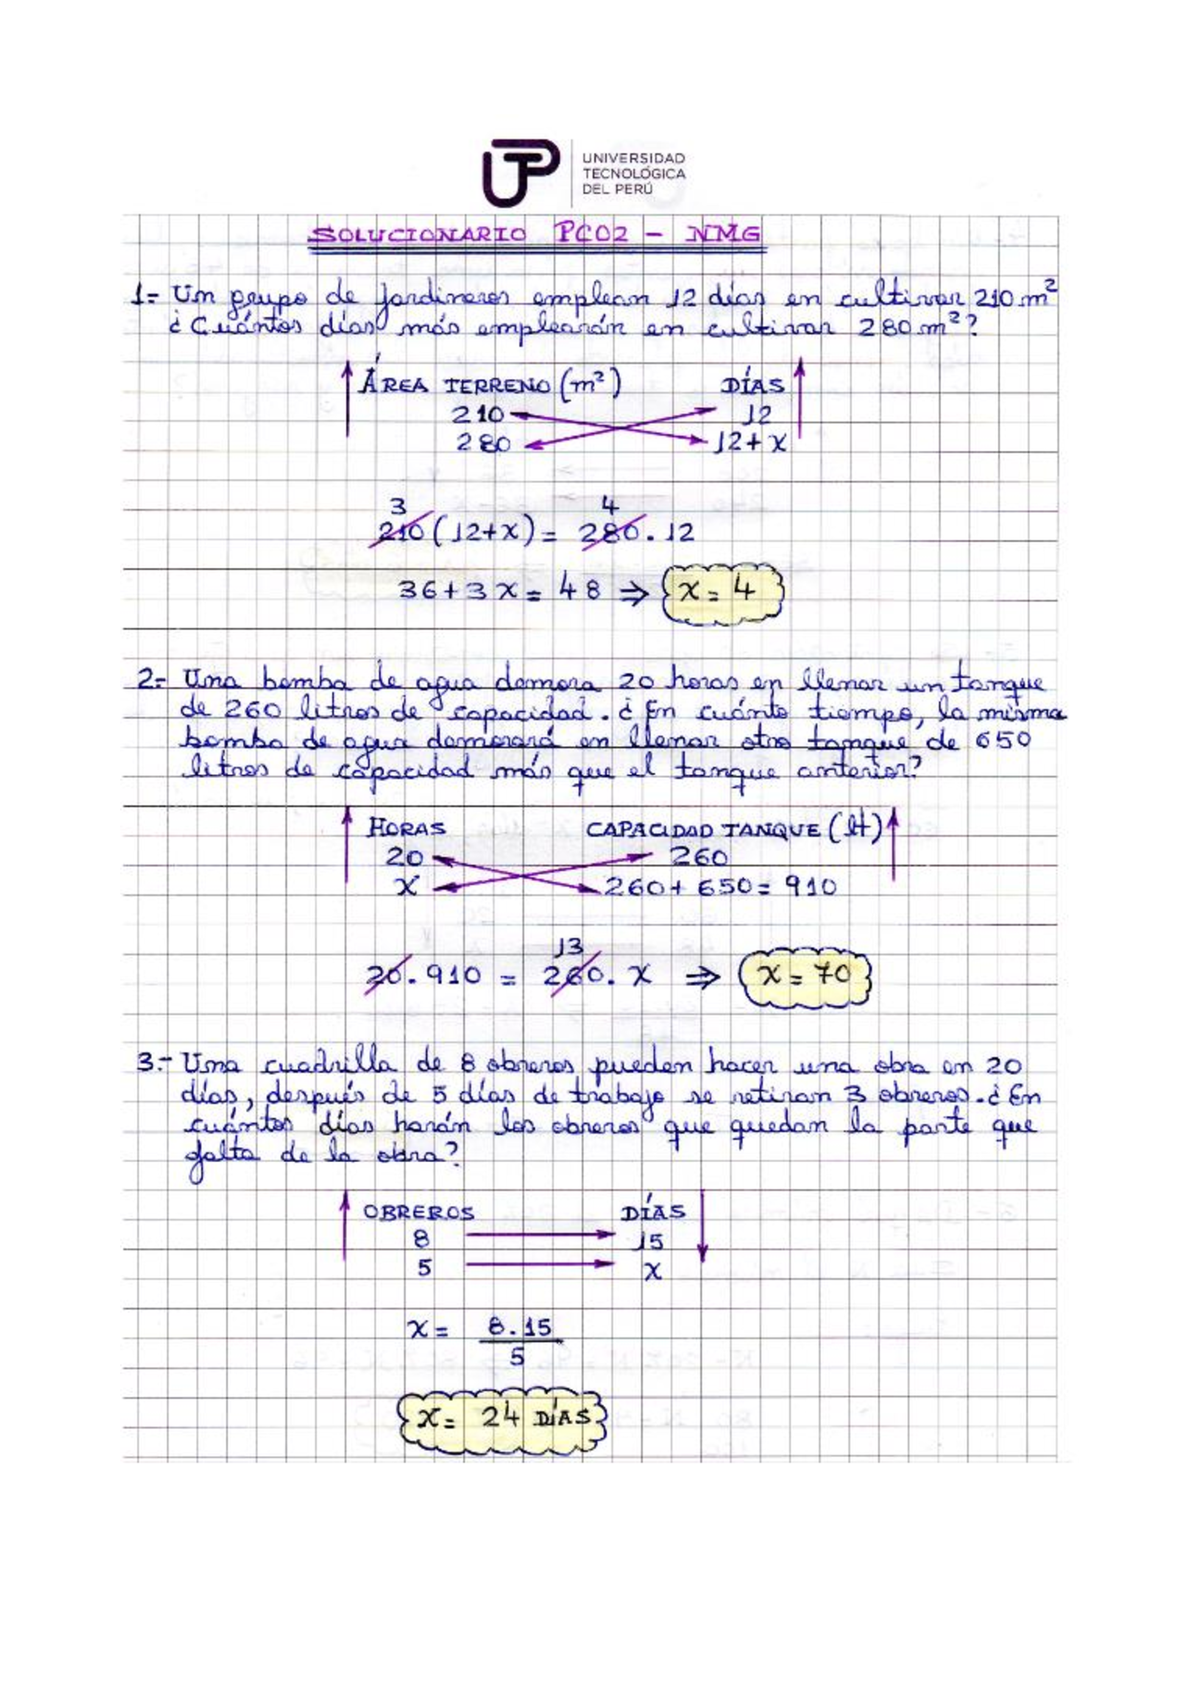 UTP
UNIVERSIDAD
TECNOLÓGICA
DEL PERÚ
SOLUCIONARIO PC02 - NMG
1.- Un grupo de jardineros emplean 12 días en cultivar 210 m²
¿Cuántos días más emplearán en cultivar 280 m²?
ÁREA TERRENO (m²) DÍAS
210 12
280 12+x
3 4
210(12+x) = 280.12
36+3x = 48 ⇒ x = 4
2.- Una bomba de agua demora 20 horas en llenar un tanque
de 260 litros de capacidad. ¿En cuánto tiempo, la misma
bomba de agua demorará en llenar otro tanque de 650
litros de capacidad más que el tanque anterior?
HORAS CAPACIDAD TANQUE (lt)
20 260
x 260+650 = 910
13
20.910 = 260.x ⇒ x = 70
3.- Una cuadrilla de 8 obreros pueden hacer una obra en 20
días, después de 5 días de trabajo se retiran 3 obreros. ¿En
cuántos días harán los obreros que quedan la parte que
falta de la obra?
OBREROS DÍAS
8 15
5 x
x = 8.15
5
x = 24 DÍAS